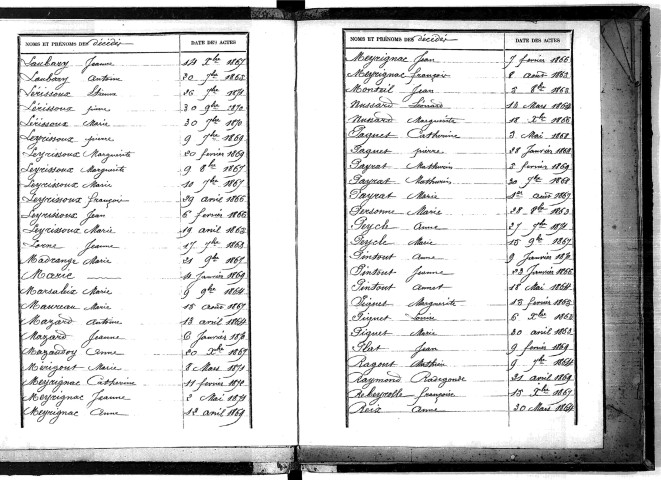 NOMS ET PRÉNOMS DES décédés DATE DES ACTES
Laubary Jeanne 14 Xbre 1867
Laubary Antoine 30 7bre 1863
Lérissoux Etienne 26 7bre 1871
Lérissoux pierre 30 9bre 1870
Lérissoux Marie 30 7bre 1870
Leyrissoux pierre 9 7bre 1869
Leyrissoux Marguerite 20 février 1869
Leyrissoux Marguerite 9 8bre 1867
Leyrissoux Marie 10 7bre 1867
Leyrissoux françois 29 avril 1866
Leyrissoux Jean 6 février 1866
Leyrissoux Marie 19 avril 1863
Lorne Jeanne 17 7bre 1863
Madrange Marie 21 9bre 1867
Marie 4 Janvier 1869
Marsaleix Marie 9 9bre 1864
Maureau Marie 15 août 1867
Mazard Antoine 13 avril 1864
Mazard Jeanne 6 Janvier
Mazaudoy Anne 20 Xbre 1867
Mérigout Marie 8 Mars 1871
Meyrignac Catherine 11 février 1872
Meyrignac Jeanne 2 Mai 1871
Meyrignac Anne 12 avril 1869
NOMS ET PRÉNOMS DES décédés DATE DES ACTES
Meyrignac Jean 7 février 1866
Meyrignac françois 8 août 1863
Monteil Jean 5 8bre 1863
Noussard Léonard 14 Mars 1864
Nussard Marguerite 18 Xbre 1868
Paquet Catherine 3 Mai 1868
Paquet pierre 28 Janvier 1868
Payrat Mathurin 2 février 1869
Payrat Mathurin 30 7bre 1868
Payrat Marie 1er août 1867
Personne Marie 28 8bre 1863
Peycle Anne 27 7bre 1871
Peycle Marie 15 9bre 1867
Pintout Anne 9 Janvier
Pintout Jeanne 23 Janvier 1866
Pintout Annet 18 Mai 1864
Piquet Marguerite 13 février 1863
Piquet Louise 6 Xbre 1863
Piquet Marie 30 avril 1863
Plat Jean 9 février 1869
Ragout Mathieu 9 7bre 1864
Raymond Radegonde 21 avril 1869
Rebeyrolle françoise 15 Xbre 1867
Reix Anne 30 Mars 1864